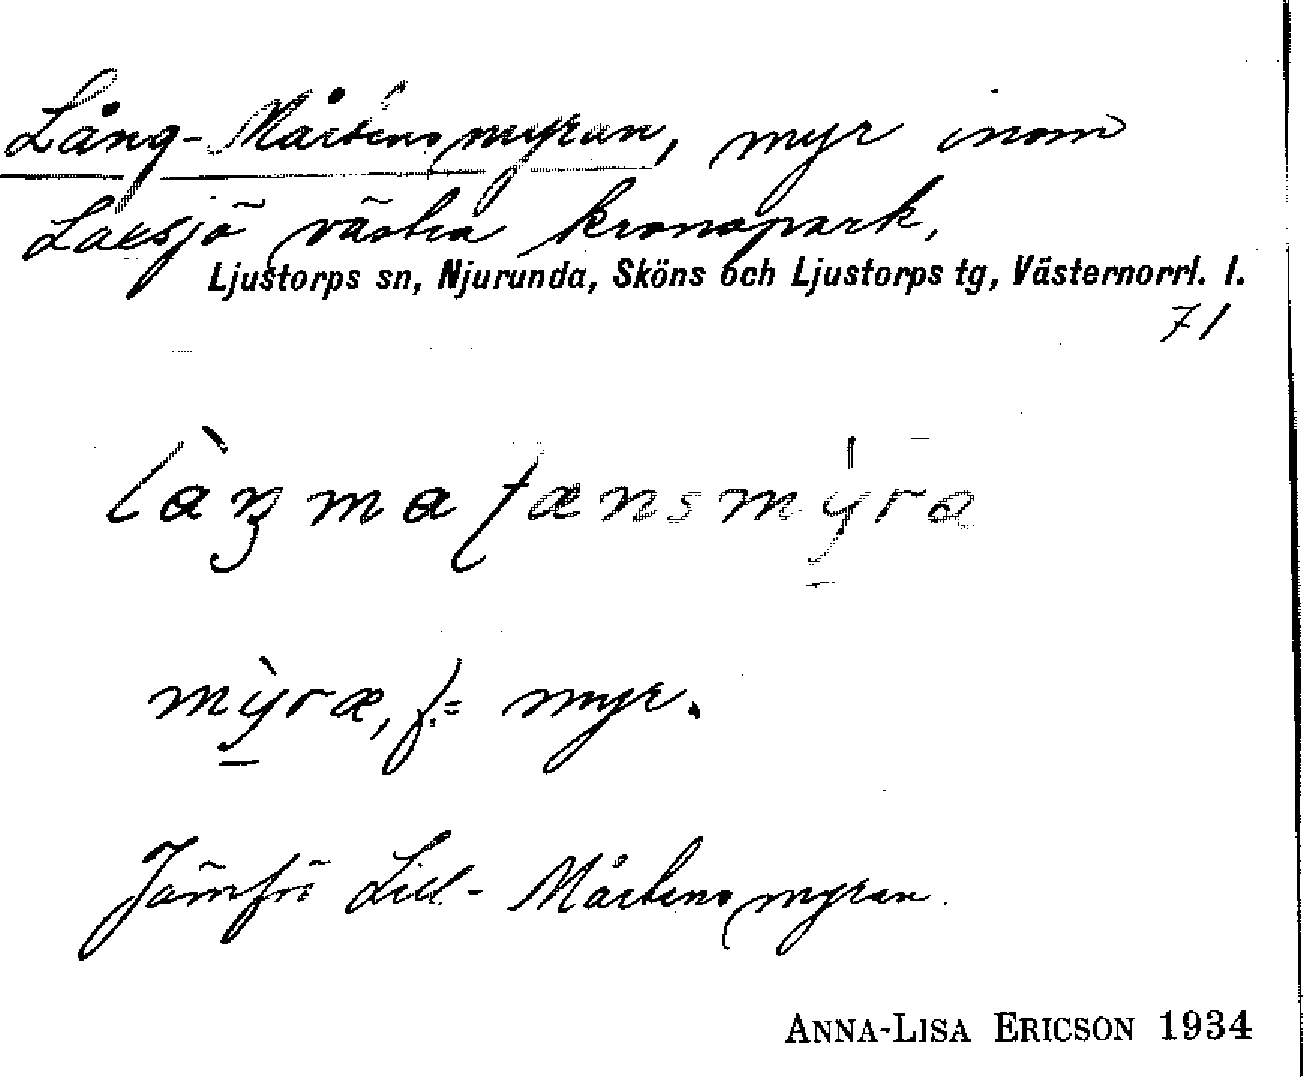 Lång-Mårtensmyran, myr inom
Laxsjö västra kronopark.
Ljustorps sn, Njurunda, Sköns och Ljustorps tg, Västernorrl. l.
71
myr.
Jämför Lill-Mårtensmyran.
ANNA-LISA ERICSON 1934